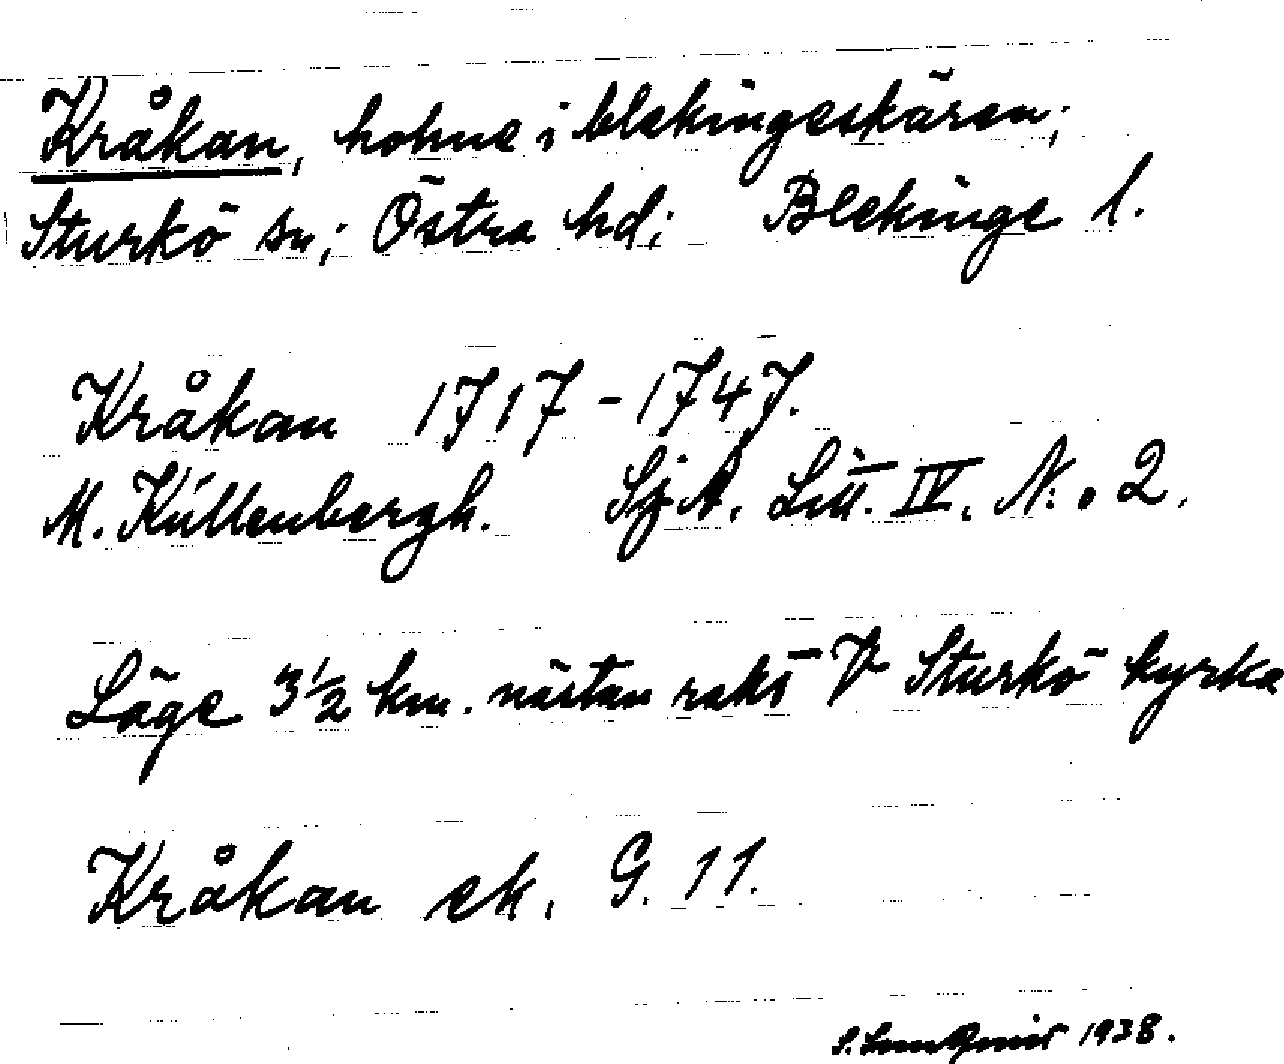 Kråkan, holme i blekingeskären;
Sturkö sn; Östra hd; Blekinge l.
Kråkan 1717-1747.
M. Küllenbergh. Sj. A. Litt. IV. N:o 2.
Läge 3½ km. nästan rakt V Sturkö kyrka
Kråkan ek. G. 11.
1938.